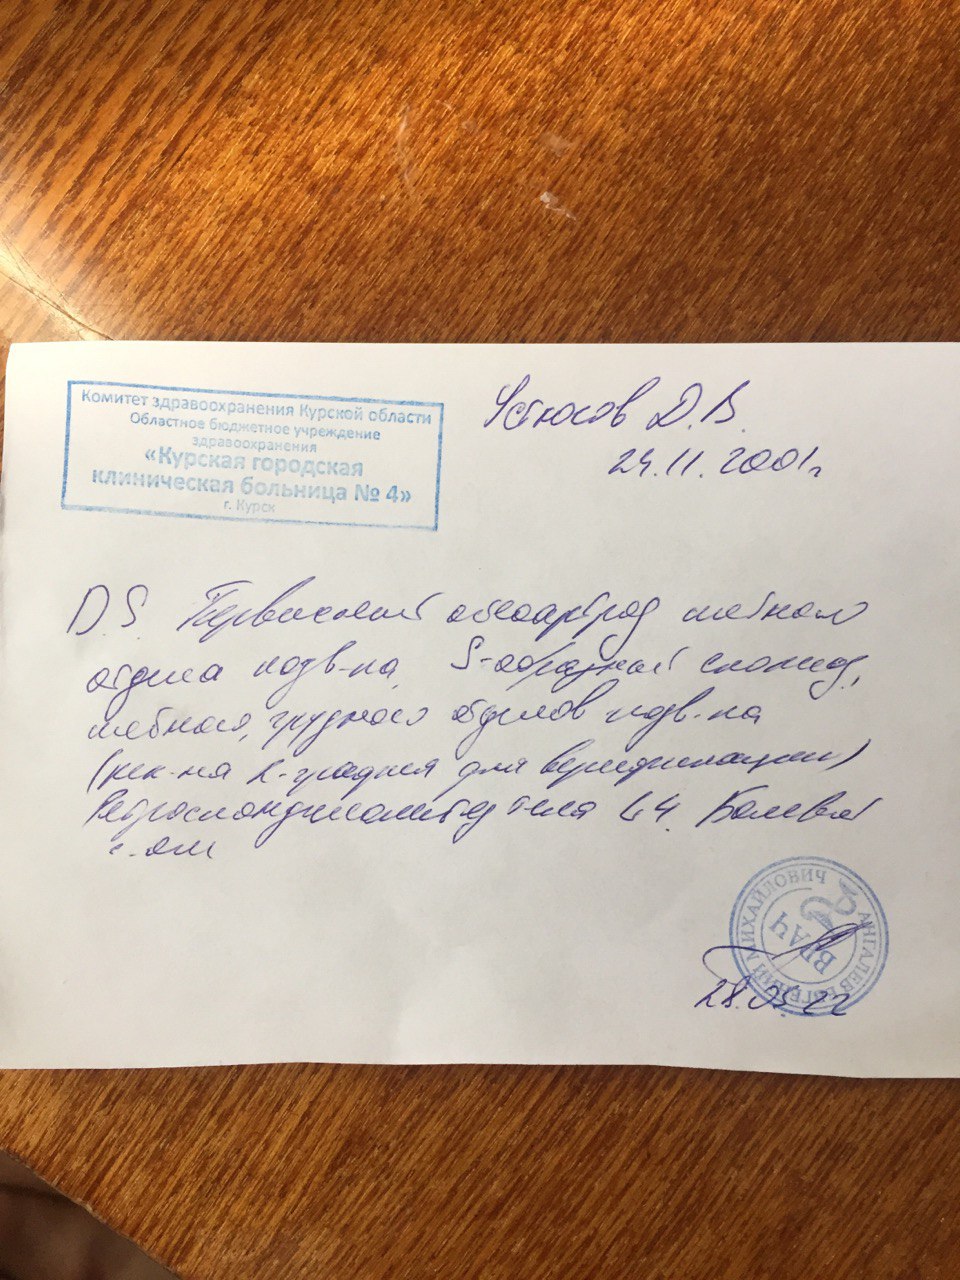 Комитет здравоохранения Курской области
Областное бюджетное учреждение
здравоохранения
«Курская городская
клиническая больница № 4»
г. Курск
Д.В.
24.11.2001г
D.S. остеоартроз шейного
отдела позв-ка, S-образный сколиоз,
шейного, грудного отделов позв-ка
(рек-на R-графия для верификации)
тела L4. Болевой
с-ом
ВРАЧ
АНГАЛЕВ ЕВГЕНИЙ МИХАЙЛОВИЧ
28.03.22